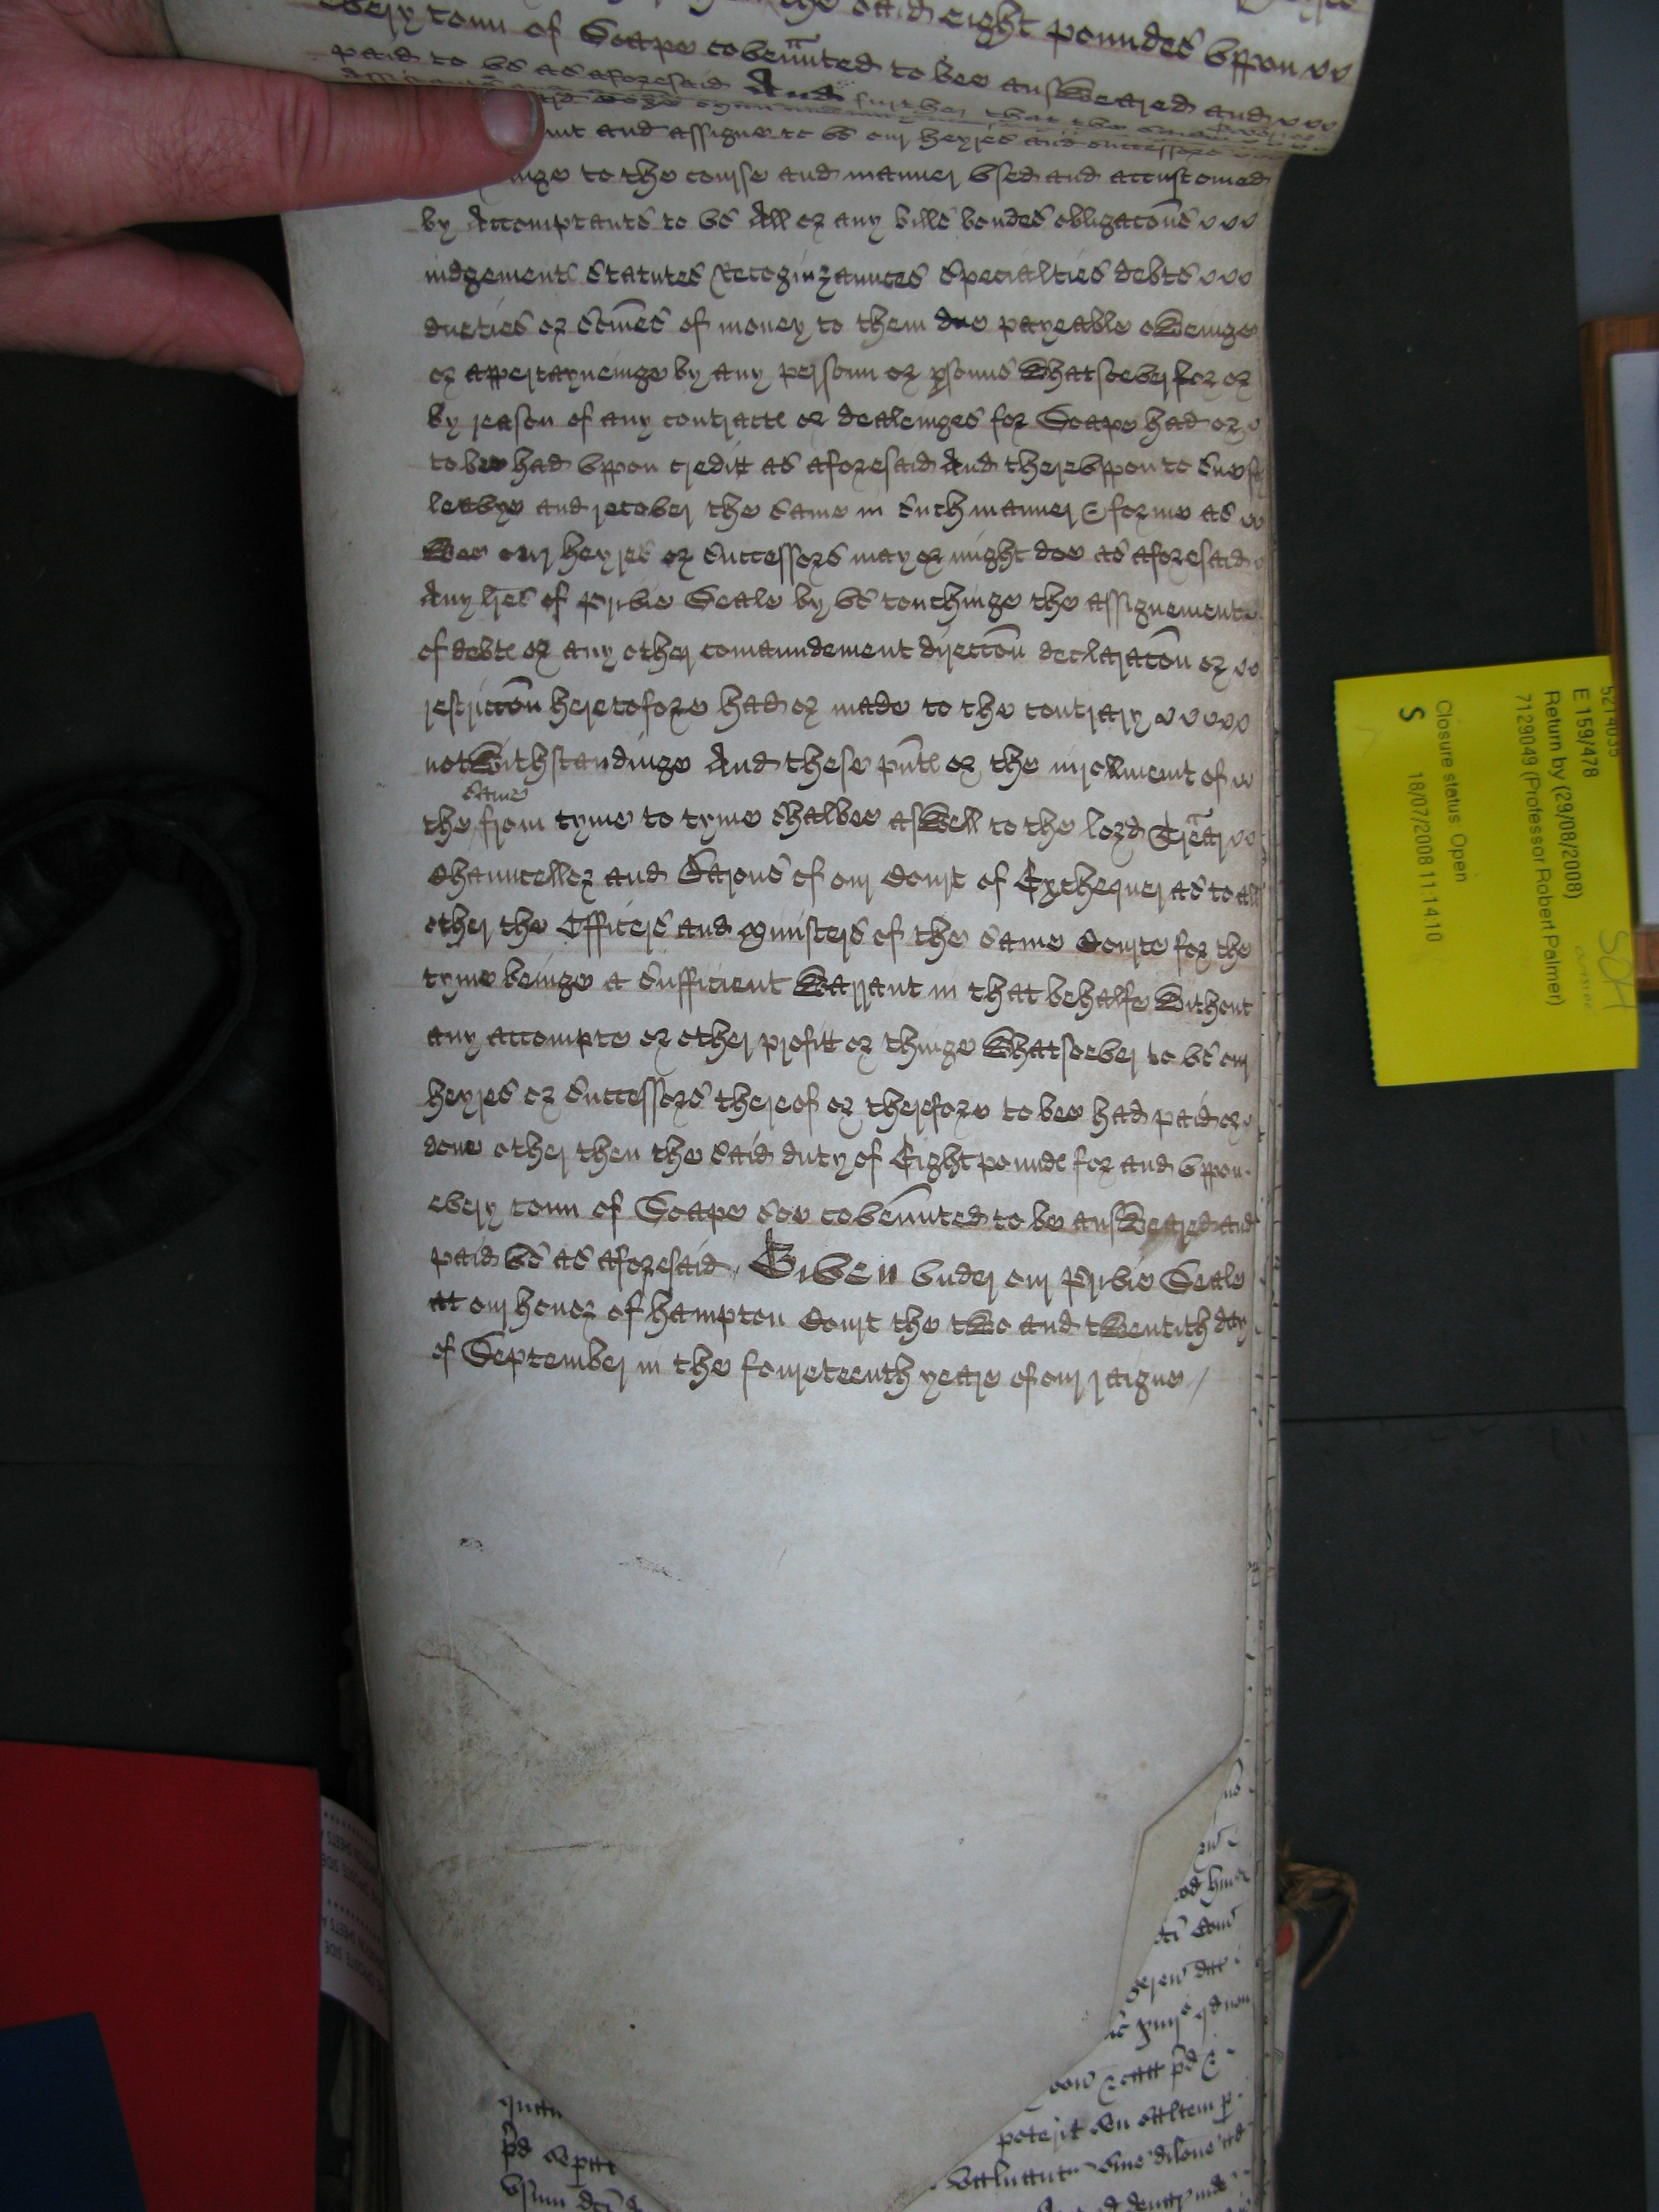 the said eight poundes vppon
every tonn of Soape covennted to bee answeared and
paid to vs as aforesaid And further that the
and assigne to vs our heyres and successors
to the course and manner vsed and accustomed
by Accomptants to vs All or any bills bondes obligacons
iudgementes Statutes Recognizaunces Specialties debts
dueties or Somes of money to them due payeable oweinge
or appertayneinge by any person or psonns whatsoever for or
by reason of any contracte or dealeinges for Soape had or
to bee had vppon creditt as aforesaid And therevppon to sue for
leavye and recover the same in such manner & forme as
Wee our heyres or Successors may or might doe as aforesaid
Any lres of Privie Seale by vs touchinge the assignemente
of debtes or any other comaundement direccon declaracon or
restriccon heretofore had or made to the contrary
notwithstandinge And these pntes or the inrollment of
the same from tyme to tyme shalbee aswell to the lord Trear
Chauncellor and Barons of our Court of Exchequer as to all
other the Officers and Ministers of the same Courte for the
tyme beinge a sufficient Warrant in that behalfe Without
any accompte or other profitt or thinge Whatsoever to vs our
heyres or Successors thereof or therefore to bee had paid or
done other then the said duty of Eight poundes for and vppon
every tonn of Soape soe covennted to be answeared and
paid vs as aforesaid, Given vnder our Privie Seale
at our honor of hampton Court the two and twentith day
of September in the foureteenth yeare of our raigne /
E 159/478
Return by (29/08/2008)
7129049 (Professor Robert Palmer)
Closure status: Open
S 18/07/2008 11:14:10